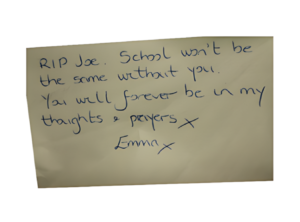 RIP Joe. School won't be
the same without you.
You will forever be in my
thoughts & prayers x
Emma x